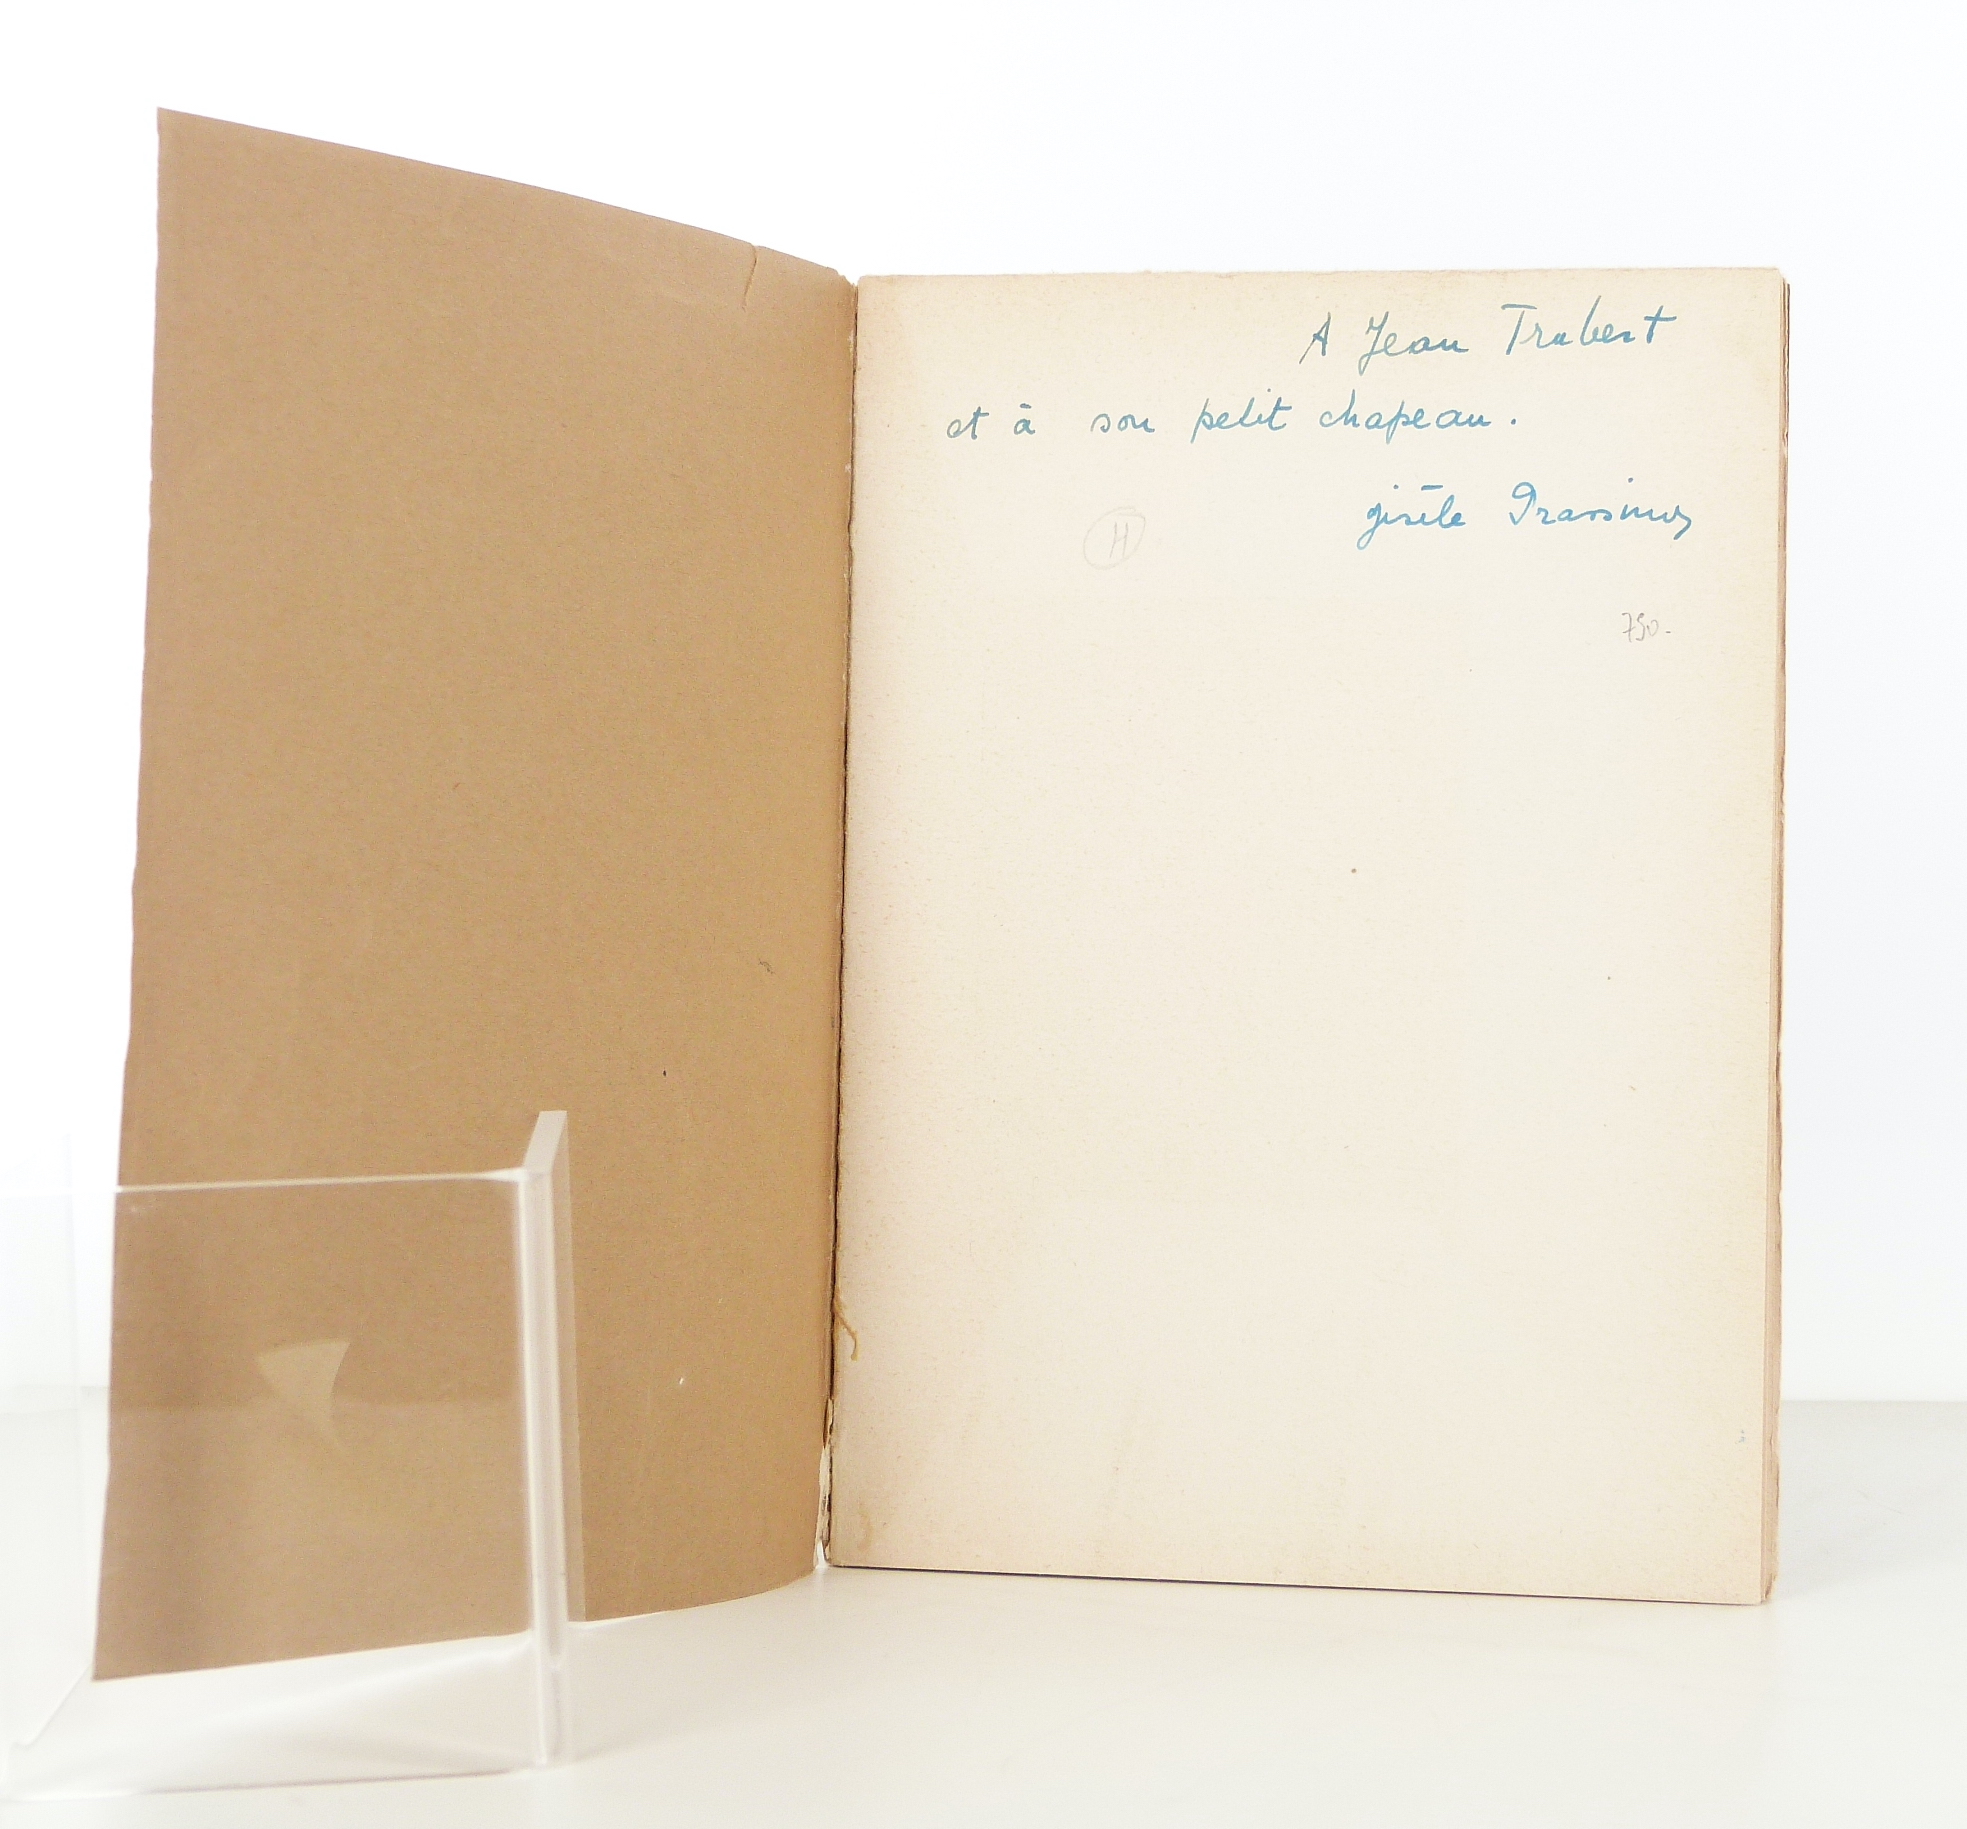 A Jean Trubert
et à son petit chapeau.
gisèle Prassinos
H
750.-